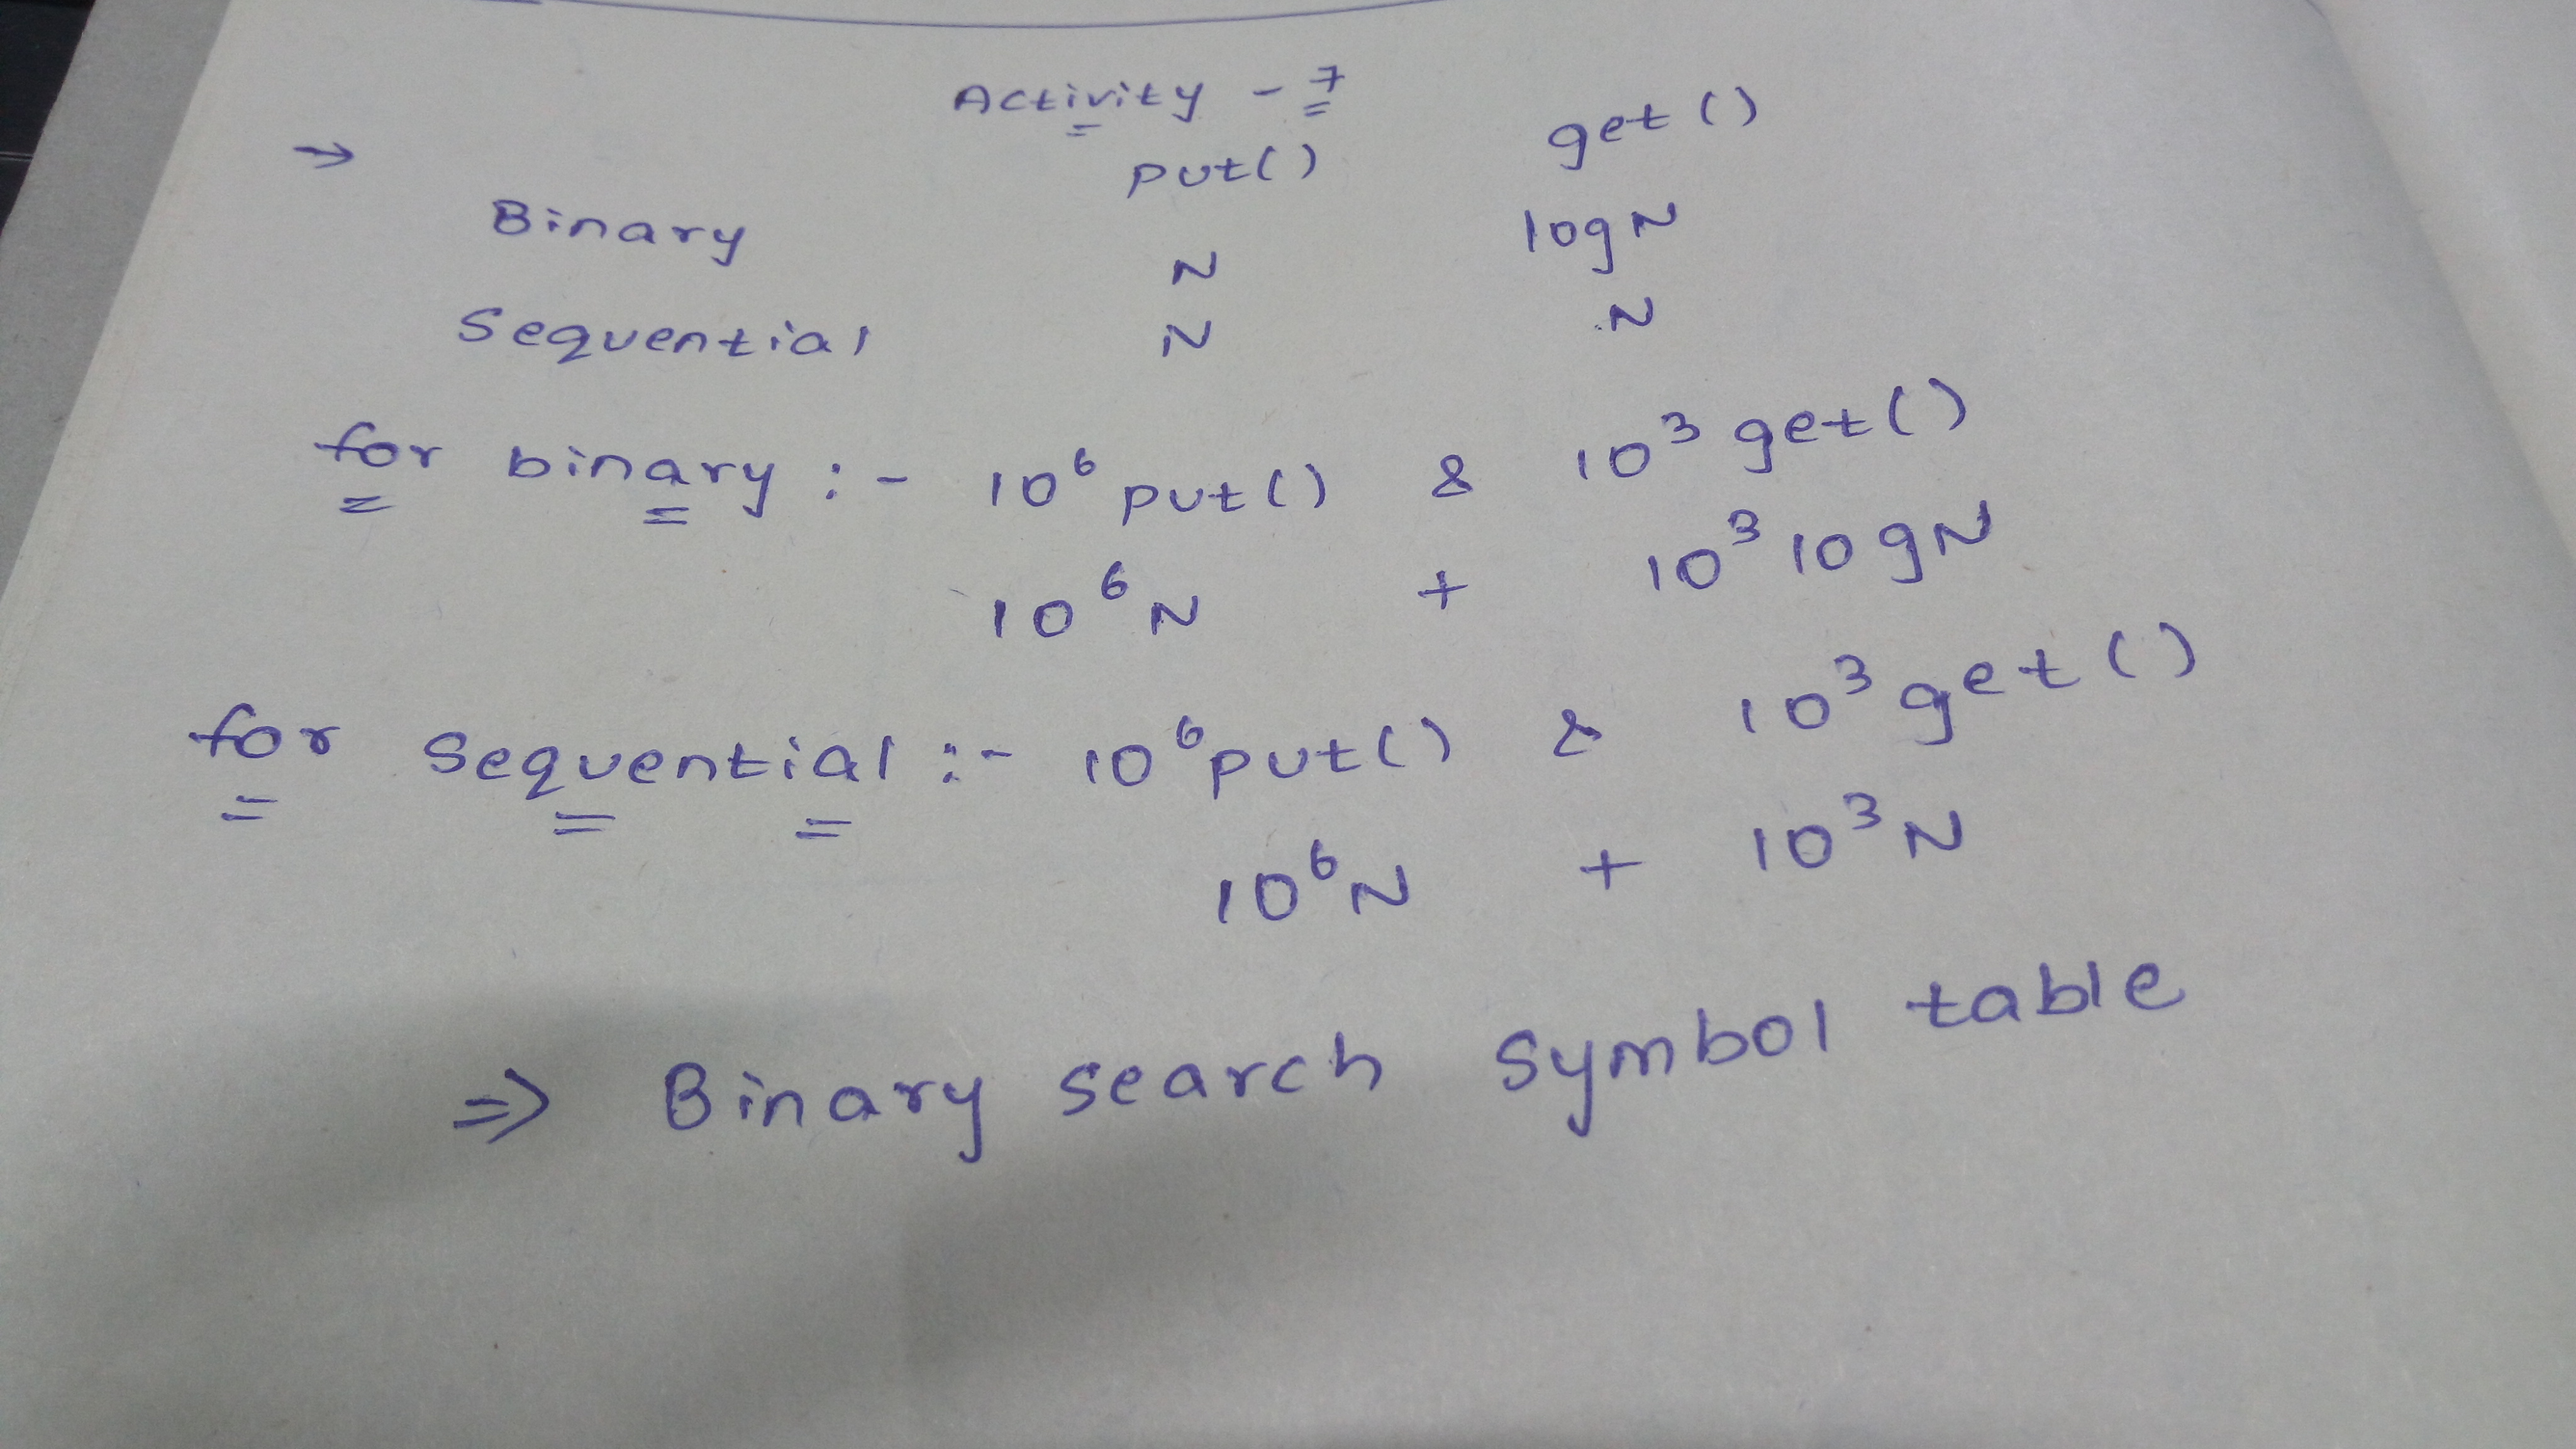 Activity - 7
→ put() get()
Binary N logN
Sequential N N
for binary :- 10⁶ put() & 10³ get()
10⁶N + 10³ logN
for sequential :- 10⁶ put() & 10³ get()
10⁶N + 10³N
⇒ Binary search symbol table